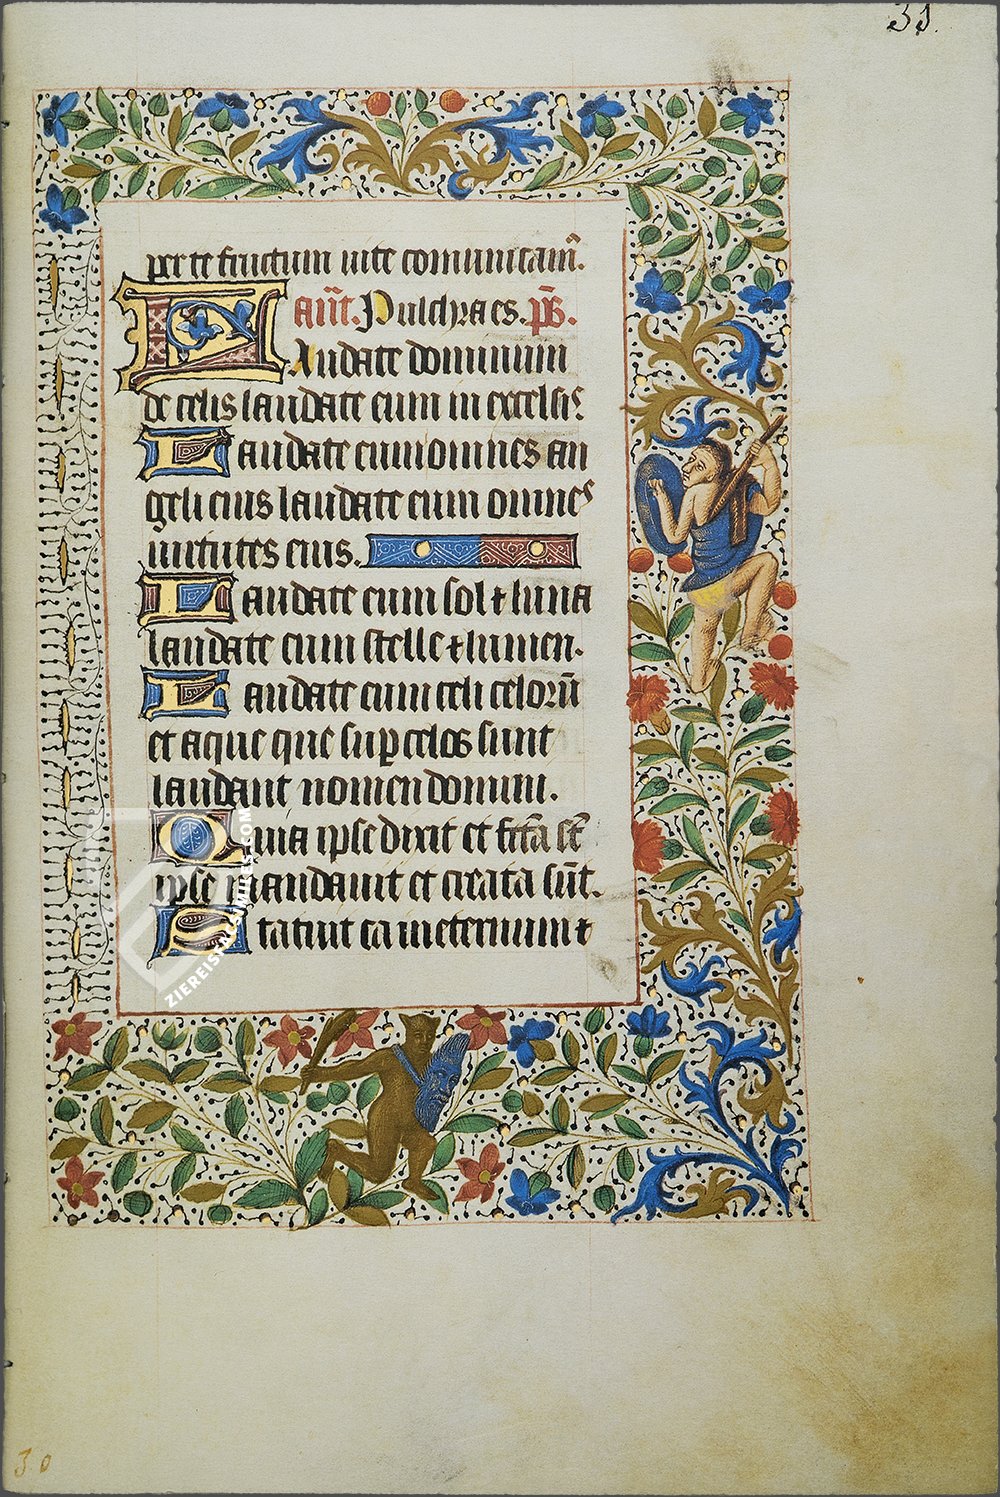 31.
per te fructum uite comunicam̃.
añt. Pulchra es. ps̃.
Laudate dominum
de celis laudate eum in excelsis
Laudate eum omnes an
geli eius laudate eum omnes
uirtutes eius.
Laudate eum sol ⁊ luna
laudate eum stelle ⁊ lumen.
Laudate eum celi celorũ
et aque que sup celos sunt
laudant nomen domini.
Quia ipse dixit et fcta st̃
ipse mandauit et creata sũt.
Statuit ea in eternum ⁊
ZIEREIS FACSIMILES.COM
30